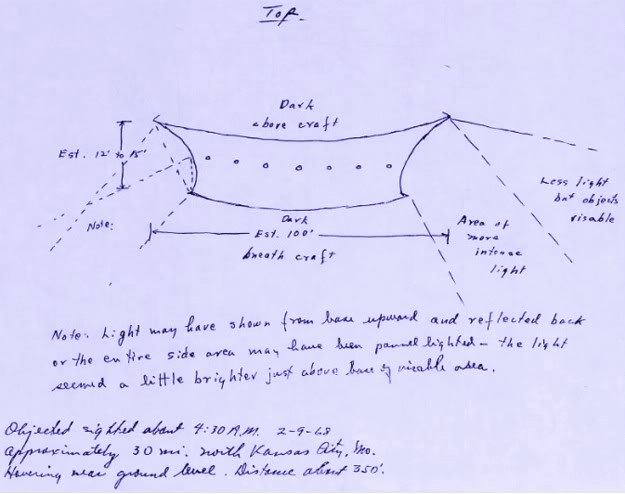 Top
Dark
above craft
Est. 12' to 15'
Less light
but objects
visable
Note:
Dark
Est. 100'
bneath craft
Area of
more
intense
light
Note: Light may have shown from base upward and reflected back
or the entire side area may have been pannel lighted - the light
seemed a little brighter just above base of visable area.
Objected sighted about 4:30 A.M. 2-9-68
approximately 30 mi. north Kansas City, Mo.
Hovering near ground level. Distance about 350'.